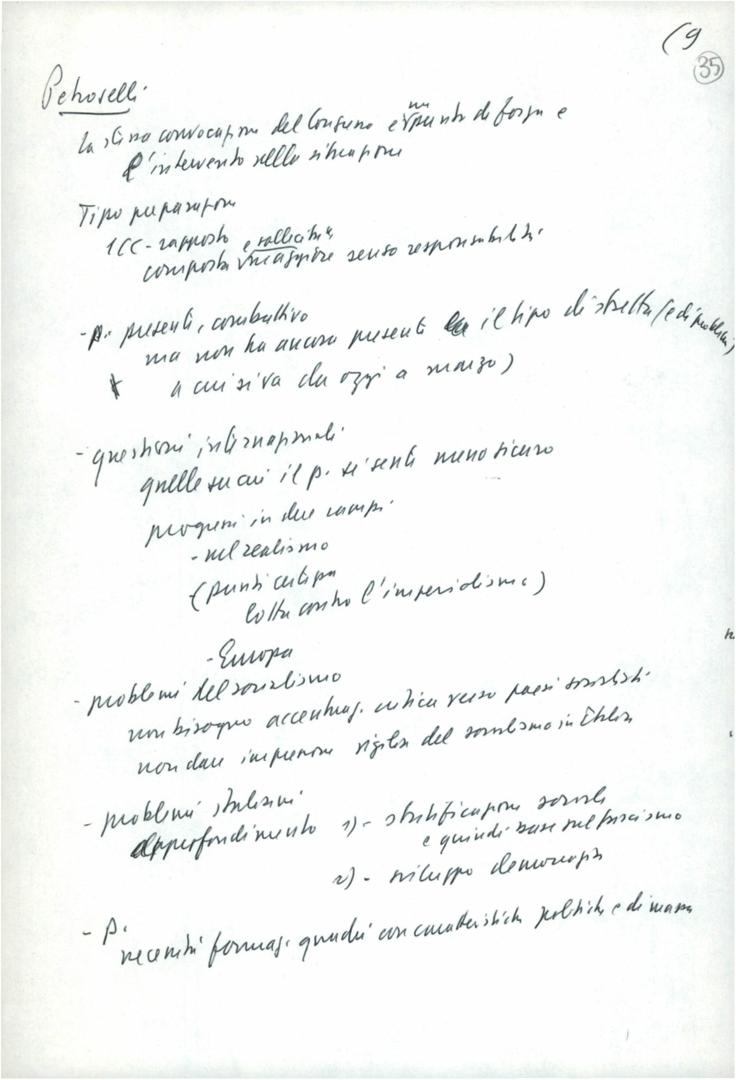 (9
35
Petroselli
la stessa convocazione del Congresso è un punto di forza e
l'intervento nella situazione
Tipo preparazione
1CC - rapporto e sollecita
composta maggiore senso responsabilità
- p. presenti, combattivo
ma non ha ancora presenti il tipo di stretta (e di problemi)
a cui si va da oggi a marzo)
- questioni internazionali
quelle su cui il p. si senti meno sicuro
progressi in due campi
- nel realismo
(punti
lotta contro l'imperialismo)
- Europa
- problemi del socialismo
non bisogno accentuaz. critica verso paesi socialisti
non dare impressione del socialismo in
- problemi italiani
approfondimento 1) - stratificazione sociale
e quindi base sul fascismo
2) - sviluppo democrazia
- p.
necessità formaz. quadri con caratteristiche politiche e di massa